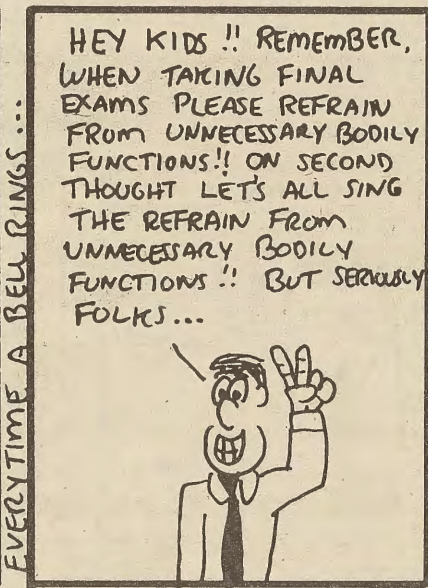 EVERYTIME A BELL RINGS...
HEY KIDS!! REMEMBER,
WHEN TAKING FINAL
EXAMS PLEASE REFRAIN
FROM UNNECESSARY BODILY
FUNCTIONS!! ON SECOND
THOUGHT LET'S ALL SING
THE REFRAIN FROM
UNNECESSARY BODILY
FUNCTIONS!! BUT SERIOUSLY
FOLKS...